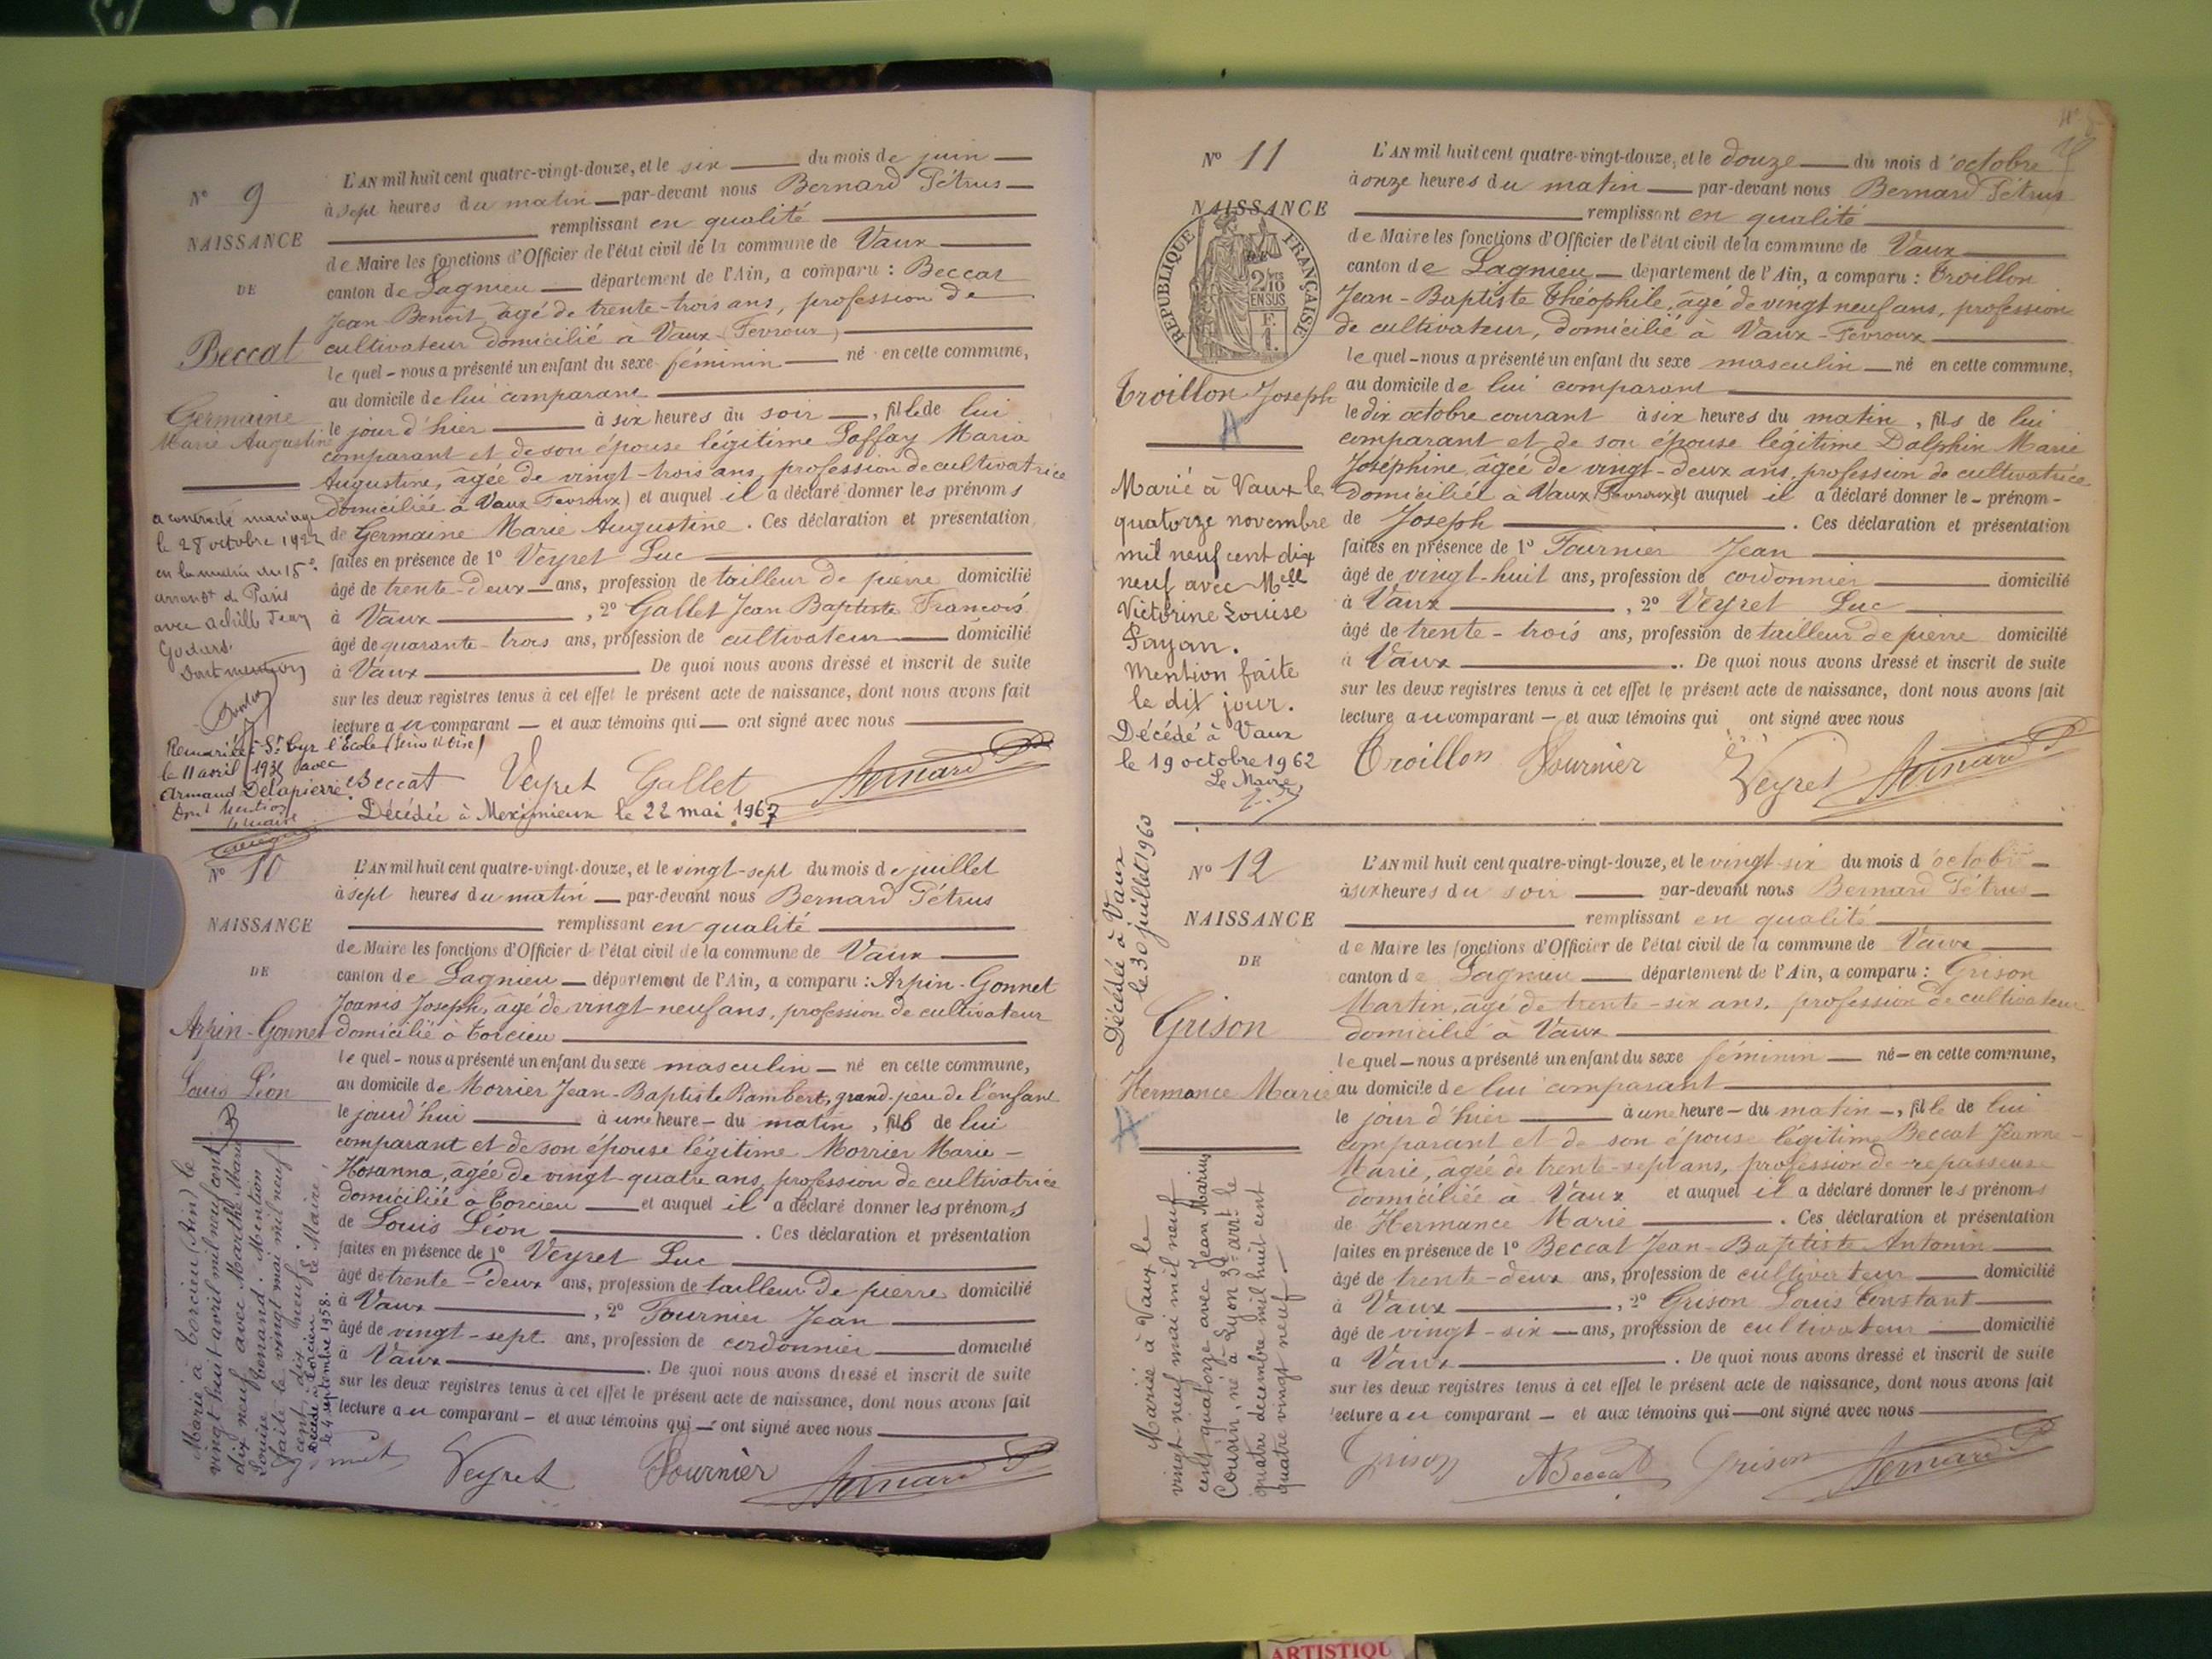 N° 9
NAISSANCE
DE
Beccat
Germaine
Marie Augustine
a contracté mariage
le 28 octobre 1922
en la mairie du 15e
arrondt de Paris
avec Achille Jean
Godard.
Dont mention
Remariée à St Cyr l'Ecole (Seine et Oise)
le 11 avril 1931 avec
Armand Delapierre.
Dont mention
Le Maire
L'AN mil huit cent quatre-vingt-douze, et le six du mois de juin
à sept heures du matin par-devant nous Bernard Pétrus
remplissant en qualité
de Maire les fonctions d'Officier de l'état civil de la commune de Vaux
canton de Lagnieu département de l'Ain, a comparu : Beccat
Jean-Benoit, âgé de trente-trois ans, profession de
cultivateur domicilié à Vaux (Fevroux)
le quel - nous a présenté un enfant du sexe féminin né en cette commune,
au domicile de lui comparant
le jour d'hier à six heures du soir, fille de lui
comparant et de son épouse légitime Laffay Maria
Augustine, âgée de vingt-trois ans, profession de cultivatrice
domiciliée à Vaux (Fevroux) et auquel il a déclaré donner les prénoms
de Germaine Marie Augustine. Ces déclaration et présentation
faites en présence de 1° Veyret Luc
âgé de trente-deux ans, profession de tailleur de pierre domicilié
à Vaux, 2° Gallet Jean Baptiste François
âgé de quarante-trois ans, profession de cultivateur domicilié
à Vaux De quoi nous avons dressé et inscrit de suite
sur les deux registres tenus à cet effet le présent acte de naissance, dont nous avons fait
lecture au comparant - et aux témoins qui ont signé avec nous
Beccat Veyret Gallet Bernard P
Décédée à Meximieux le 22 mai 1967
N° 10
NAISSANCE
DE
Arpin-Gonnet
Louis Léon
Marié à Torcieu (Ain) le
vingt huit avril mil neuf cent
dix neuf avec Marthe Marie
Louise
faite le vingt mai mil neuf
cent dix neuf.
Le Maire,
Décédé à Torcieu
le 4 septembre 1958.
L'AN mil huit cent quatre-vingt-douze, et le vingt-sept du mois de juillet
à sept heures du matin par-devant nous Bernard Pétrus
remplissant en qualité
de Maire les fonctions d'Officier de l'état civil de la commune de Vaux
canton de Lagnieu département de l'Ain, a comparu : Arpin-Gonnet
Joanis Joseph, âgé de vingt neuf ans, profession de cultivateur
domicilié à Torcieu
le quel - nous a présenté un enfant du sexe masculin né en cette commune,
au domicile de Morrier Jean-Baptiste Rambert, grand-père de l'enfant
le jourd'hui à une heure - du matin, fils de lui
comparant et de son épouse légitime Morrier Marie-
Hosanna, âgée de vingt quatre ans, profession de cultivatrice
domiciliée à Torcieu et auquel il a déclaré donner les prénoms
de Louis Léon. Ces déclaration et présentation
faites en présence de 1° Veyret Luc
âgé de trente-deux ans, profession de tailleur de pierre domicilié
à Vaux, 2° Fournier Jean
âgé de vingt-sept ans, profession de cordonnier domicilié
à Vaux. De quoi nous avons dressé et inscrit de suite
sur les deux registres tenus à cet effet le présent acte de naissance, dont nous avons fait
lecture au comparant - et aux témoins qui - ont signé avec nous
Veyret Fournier Bernard P
N° 11
NAISSANCE
REPUBLIQUE FRANÇAISE
2/10
EN SUS
F.
1.
Troillon Joseph
A
Marié à Vaux le
quatorze novembre
mil neuf cent dix
neuf avec Melle
Victorine Louise
Payan.
Mention faite
le dit jour.
Décédé à Vaux
le 19 octobre 1962
Le Maire
L'AN mil huit cent quatre-vingt-douze, et le douze du mois d'octobre
à onze heures du matin par-devant nous Bernard Pétrus
remplissant en qualité
de Maire les fonctions d'Officier de l'état civil de la commune de Vaux
canton de Lagnieu département de l'Ain, a comparu : Troillon
Jean-Baptiste Théophile, âgé de vingt neuf ans, profession
de cultivateur, domicilié à Vaux-Fevroux
le quel - nous a présenté un enfant du sexe masculin né en cette commune,
au domicile de lui comparant
le dix octobre courant à six heures du matin, fils de lui
comparant et de son épouse légitime Dalphin Marie
Joséphine, âgée de vingt-deux ans, profession de cultivatrice
domiciliée à Vaux (Fevroux) et auquel il a déclaré donner le - prénom -
de Joseph. Ces déclaration et présentation
faites en présence de 1° Fournier Jean
âgé de vingt-huit ans, profession de cordonnier domicilié
à Vaux, 2° Veyret Luc
âgé de trente-trois ans, profession de tailleur de pierre domicilié
à Vaux. De quoi nous avons dressé et inscrit de suite
sur les deux registres tenus à cet effet le présent acte de naissance, dont nous avons fait
lecture au comparant - et aux témoins qui ont signé avec nous
Troillon Fournier Veyret Bernard P
N° 12
NAISSANCE
DE
Grison
Hermance Marie
A
Décédée à Vaux
le 30 juillet 1960
Mariée à Vaux le
vingt neuf mai mil neuf
cent quatorze avec Jean Marius
Cousin, né à Lyon 3e arrt le
quatre décembre mil huit cent
quatre vingt neuf.
L'AN mil huit cent quatre-vingt-douze, et le vingt-six du mois d'octobre
à six heures du soir par-devant nous Bernard Pétrus
remplissant en qualité
de Maire les fonctions d'Officier de l'état civil de la commune de Vaux
canton de Lagnieu département de l'Ain, a comparu : Grison
Martin, âgé de trente-six ans, profession de cultivateur
domicilié à Vaux
le quel - nous a présenté un enfant du sexe féminin né - en cette commune,
au domicile de lui comparant
le jour d'hier à une heure - du matin -, fille de lui
comparant et de son épouse légitime Beccat Jeanne-
Marie, âgée de trente-sept ans, profession de repasseuse
domiciliée à Vaux et auquel il a déclaré donner les prénoms
de Hermance Marie. Ces déclaration et présentation
faites en présence de 1° Beccat Jean-Baptiste Antonin
âgé de trente-deux ans, profession de cultivateur domicilié
à Vaux, 2° Grison Louis Constant
âgé de vingt-six ans, profession de cultivateur domicilié
à Vaux. De quoi nous avons dressé et inscrit de suite
sur les deux registres tenus à cet effet le présent acte de naissance, dont nous avons fait
lecture au comparant - et aux témoins qui - ont signé avec nous
Grison ABeccat Grison Bernard P
ARTISTIQU